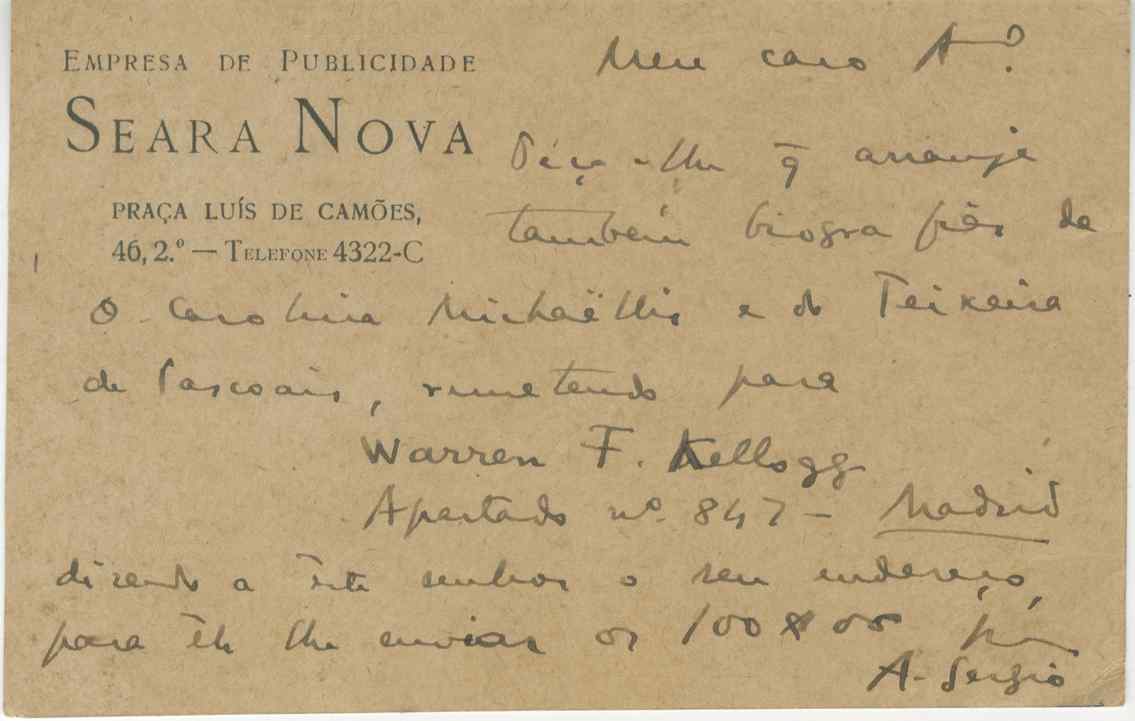 EMPRESA DE PUBLICIDADE
SEARA NOVA
PRAÇA LUÍS DE CAMÕES,
46, 2.º — TELEFONE 4322-C
Meu caro Aº.
Peço-lhe q̄ arranje
também biografias de
D. Carolina Michaëllis e do Teixeira
de Pascoais, remetendo para
Warren F. Kellogg
Apartado nº. 847 - Madrid
dizendo a êste senhor o seu endereço,
para êle lhe enviar os 100$00
A. Sergio